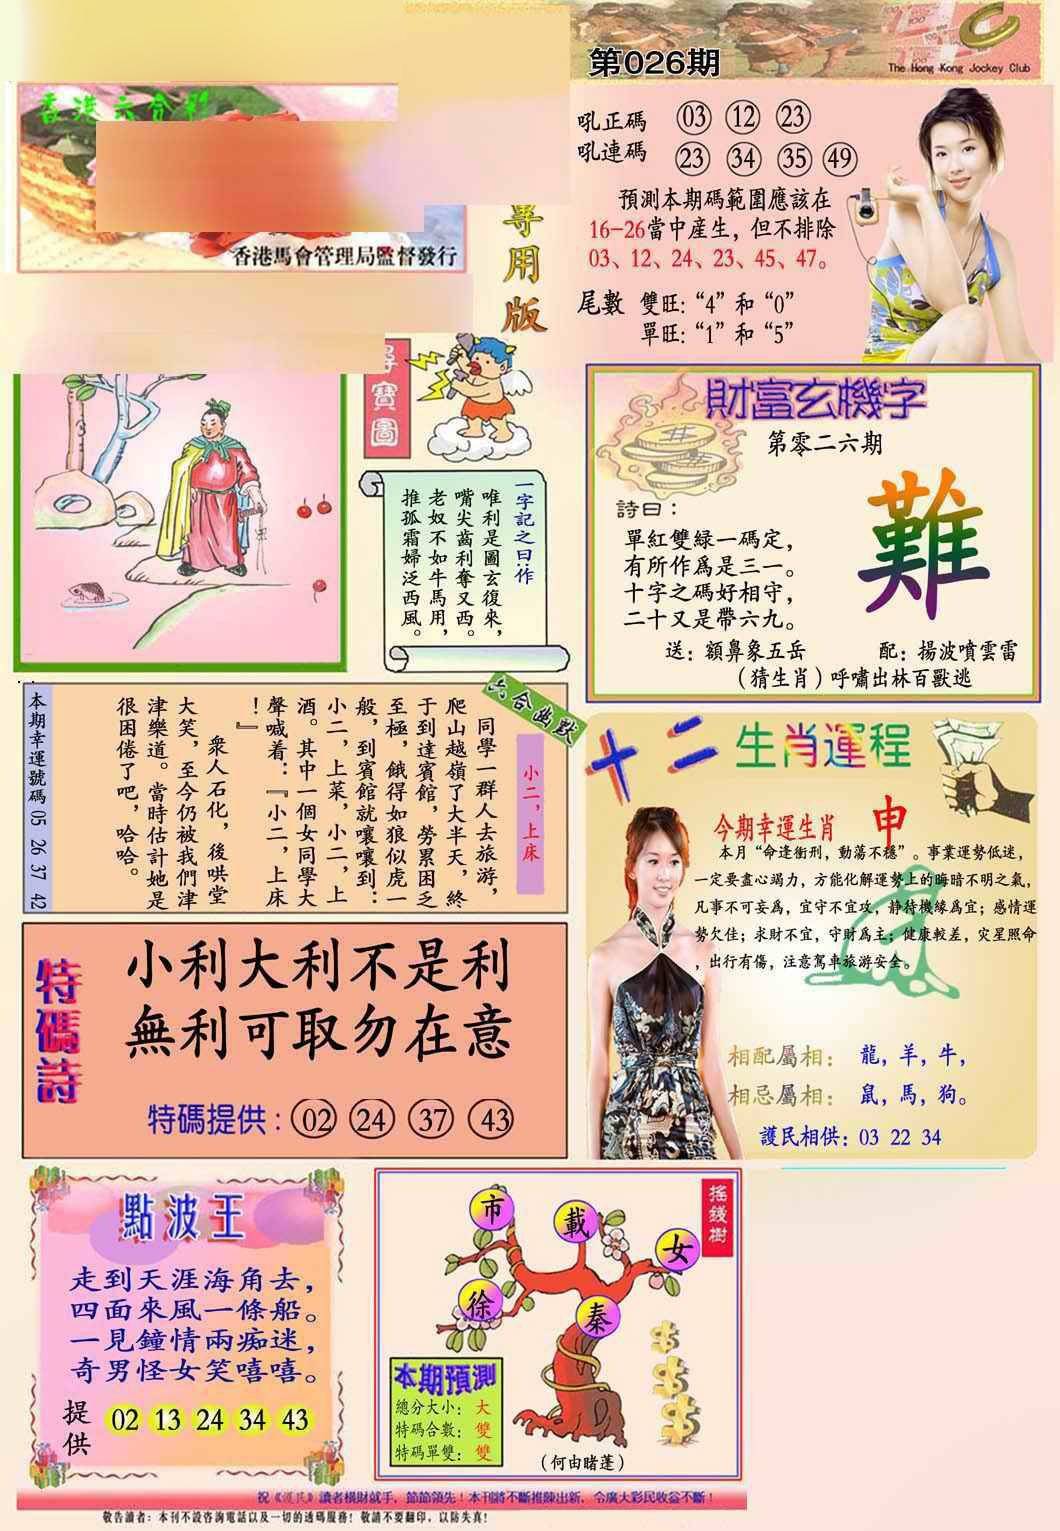 第026期
The Hong Kong Jockey Club
香港六合彩
香港馬會管理局監督發行
專用版
吼正碼 03 12 23
吼連碼 23 34 35 49
預測本期碼範圍應該在
16-26當中産生，但不排除
03、12、24、23、45、47。
尾數 雙旺:“4”和“0”
單旺:“1”和“5”
尋寶圖
一字記之曰:作
唯利是圖玄復來，
嘴尖齒利奪又西。
老奴不如牛馬用，
推孤霜婦泛西風。
財富玄機字
第零二六期
詩曰：
單紅雙緑一碼定，
有所作爲是三一。
十字之碼好相守，
二十又是帶六九。
難
送：額鼻象五岳 配：揚波噴雲雷
（猜生肖）呼嘯出林百獸逃
本期幸運號碼 05 26 37 42
六合幽默
小二，上床
同學一群人去旅游，
爬山越嶺了大半天，終
于到達賓館，勞累困乏
至極，餓得如狼似虎一
般，到賓館就嚷嚷到：
小二，上菜，小二，上
酒。其中一個女同學大
聲喊着：『小二，上床
！』
衆人石化，後哄堂
大笑，至今仍被我們津
津樂道。當時估計她是
很困倦了吧，哈哈。
十二生肖運程
今期幸運生肖 申
本月“命逢衝刑，動蕩不穩”。事業運勢低迷，
一定要盡心竭力，方能化解運勢上的晦暗不明之氣，
凡事不可妄爲，宜守不宜攻，静待機緣爲宜；感情運
勢欠佳；求財不宜，守財爲主；健康較差，灾星照命
，出行有傷，注意駕車旅游安全。
相配屬相：龍，羊，牛，
相忌屬相：鼠，馬，狗。
護民相供：03 22 34
特碼詩
小利大利不是利
無利可取勿在意
特碼提供：02 24 37 43
點波王
走到天涯海角去，
四面來風一條船。
一見鐘情兩痴迷，
奇男怪女笑嘻嘻。
提供 02 13 24 34 43
搖錢樹
市
載
女
徐
秦
本期預測
總分大小：大
特碼合數：雙
特碼單雙：雙
（何由睹蓬）
祝《護民》讀者橫財就手，節節領先！本刊將不斷推陳出新，令廣大彩民收益不斷！
敬告讀者：本刊不設咨詢電話以及一切的透碼服務！敬請不要翻印，以防失真！